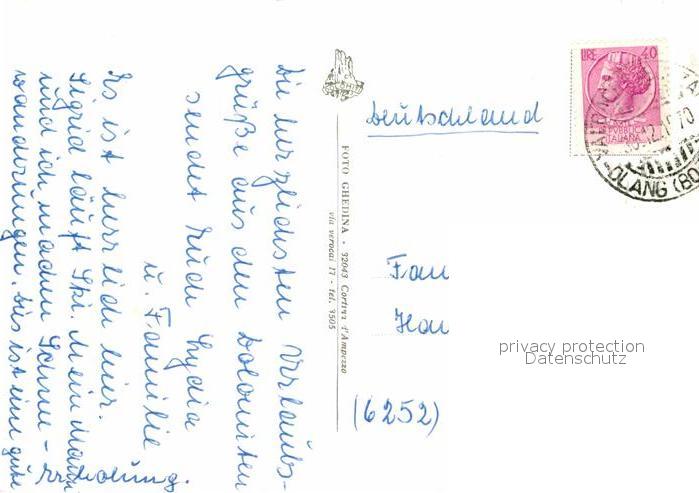 Die herzlichsten Urlaubs-
grüße aus den Dolomiten
sendet Euch Lydia
u. Familie
Es ist herrlich hier.
Sigrid läuft Ski. Mein Mann
und ich machen Schnee-
wanderungen. Das ist eine gute
Erholung.
FOTO GHEDINA - 32043 Cortina d'Ampezzo
via verocai 17 - tel. 3505
Deutschland
LIRE 40
REPVBBLICA
ITALIANA
30.12.1970
OLANG (BO
Frau
Hou
privacy protection
Datenschutz
(6252)